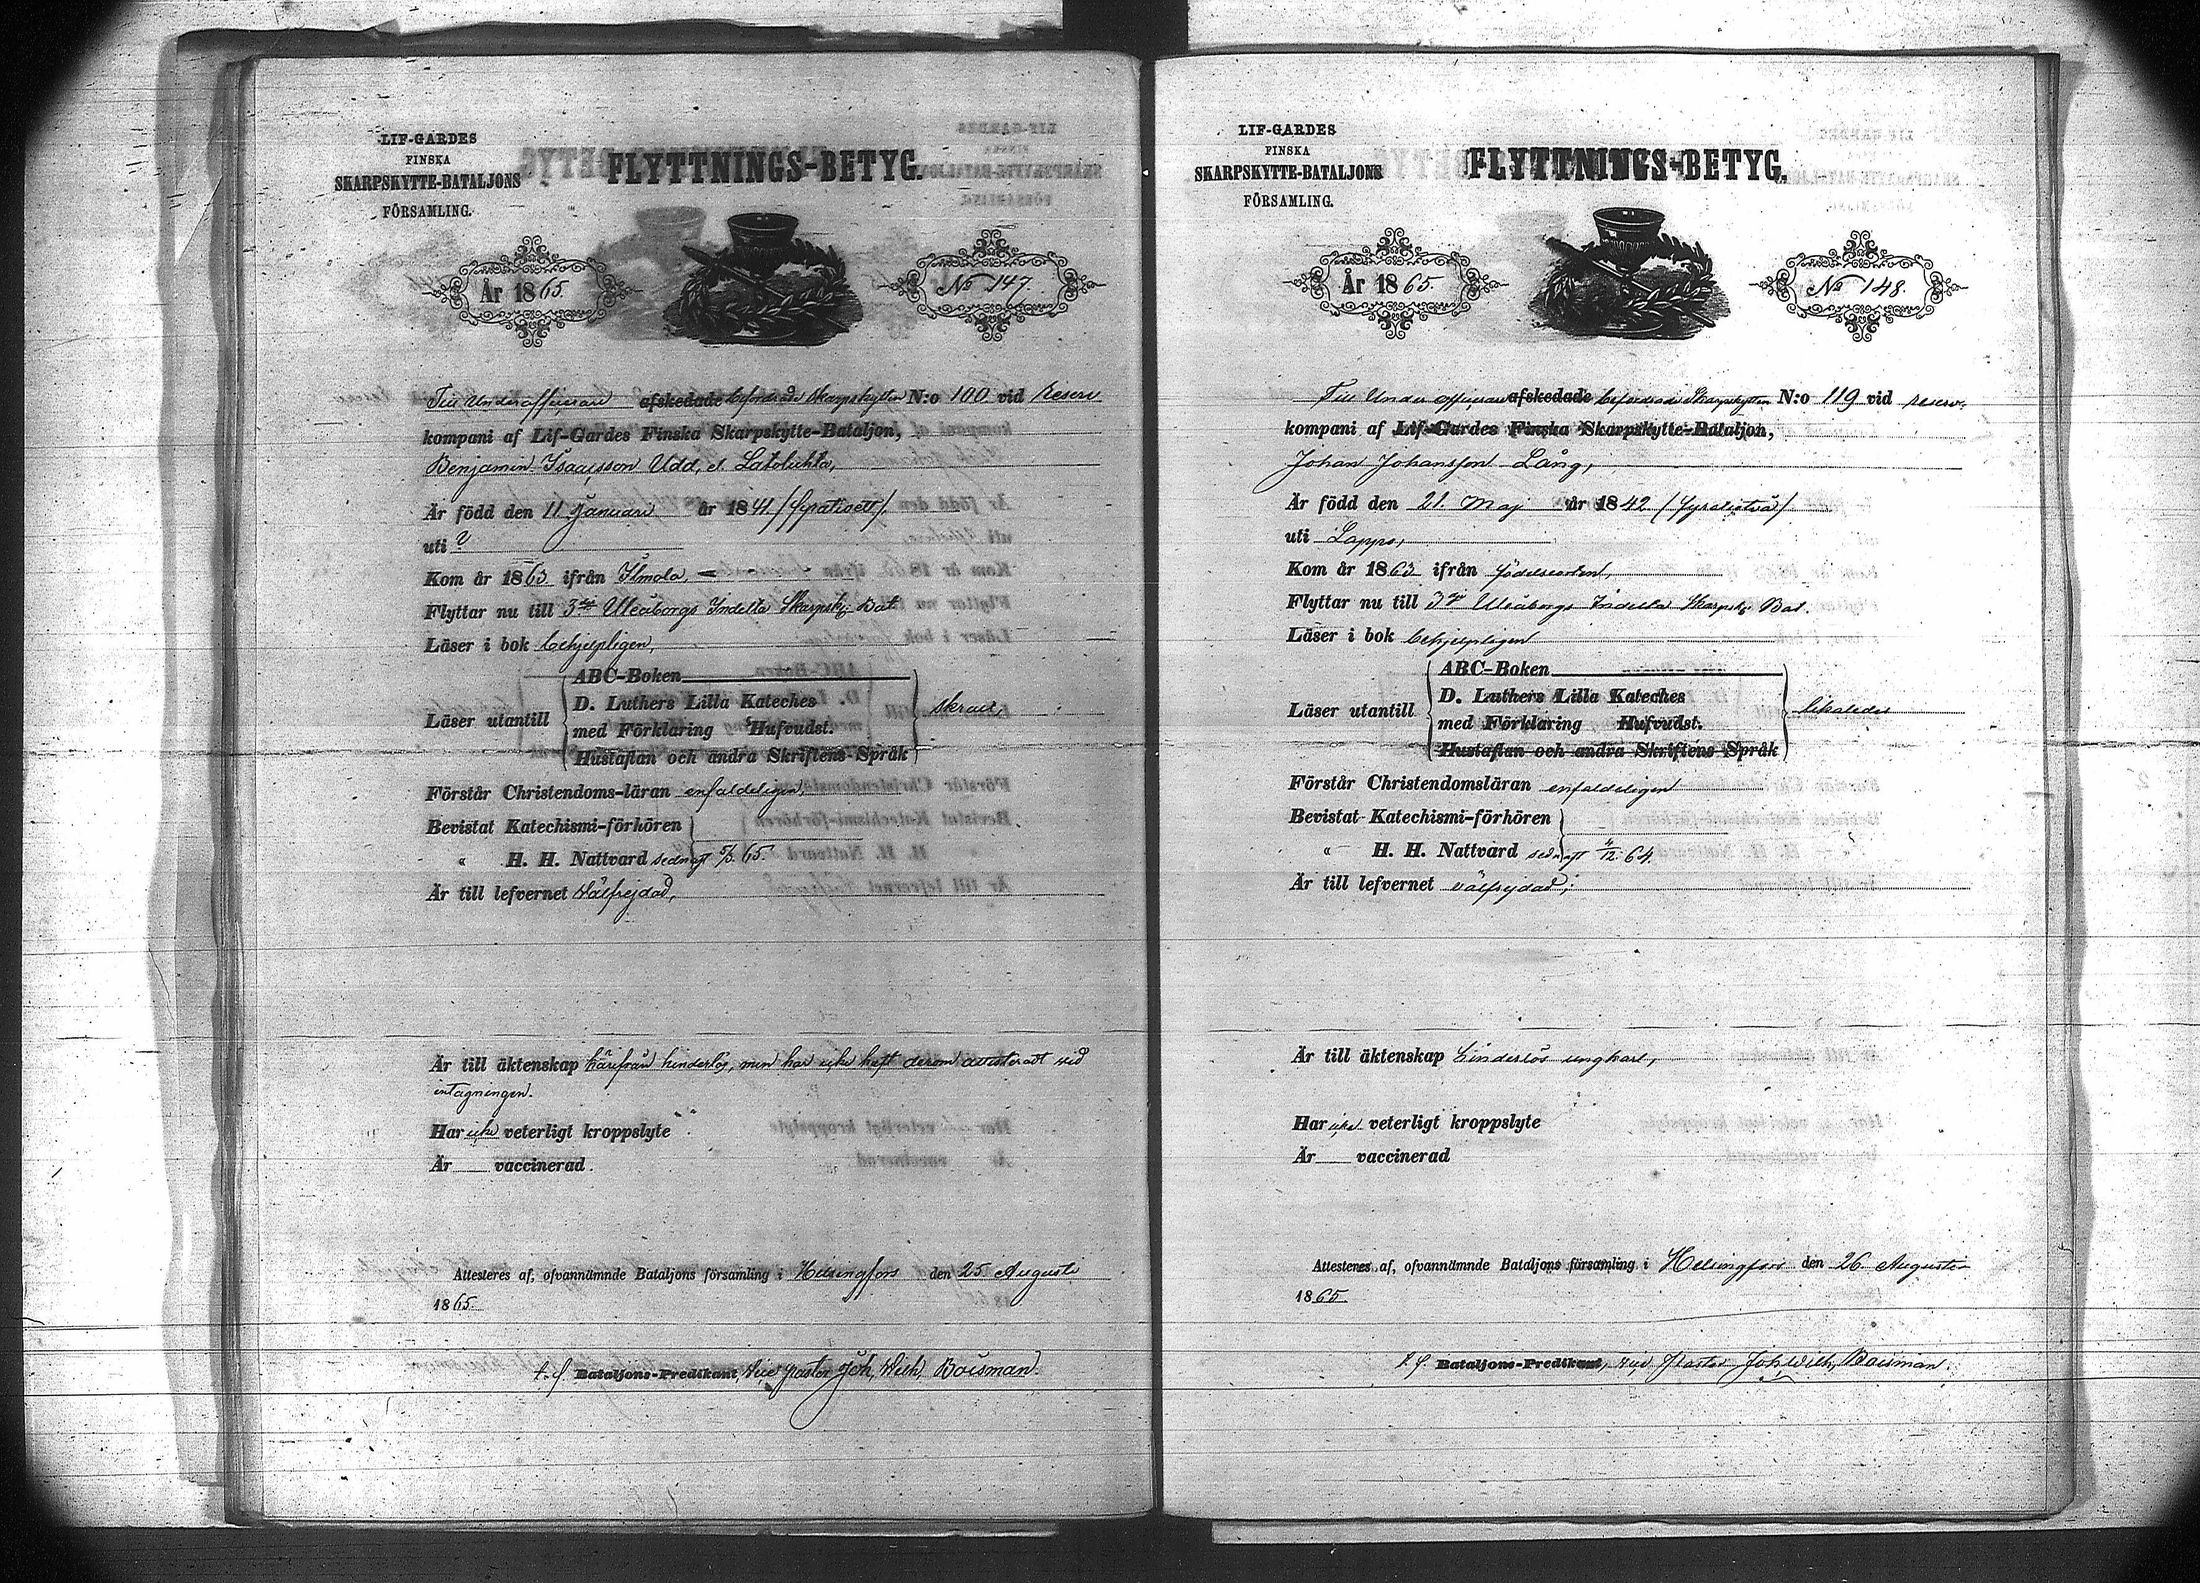 LIF-GARDES
FINSKA
SKARPSKYTTE-BATALJONS
FÖRSAMLING.
FLYTTNINGS-BETYG.
År 1865.
No 147.
Till Underofficerare afskedade befordrade Skarpskytten N:o 100 vid Reserv
kompani af Lif-Gardes Finska Skarpskytte-Bataljon,
Benjamin Isacsson Udd, el. Latoluhta,
Är född den 11 Januari år 1841 (fyratioett).
uti ?
Kom år 1863 ifrån Ilmola,
Flyttar nu till 3dje Uleåborgs Indelta Skarpsk. Bat.
Läser i bok behjelpligen,
ABC-Boken
D. Luthers Lilla Kateches
Läser utantill
med Förklaring Hufvudst.
Hustaflan och andra Skriftens Språk
Förstår Christendoms-läran enfaldeligen,
Bevistat Katechismi-förhören
« H. H. Nattvard sednast 5/3 65.
Är till lefvernet Välfrejdad,
Är till äktenskap härifrån hinderlös, men har icke haft derom attesteradt vid
intagningen.
Har icke veterligt kroppslyte
Är vaccinerad
Attesteres af, ofvannämnde Bataljons församling i Helsingfors den 25 Augusti
1865.
Bataljons-Predikant, Vice pastor Joh. Wilh. Boisman.
LIF-GARDES
FINSKA
SKARPSKYTTE-BATALJONS
FÖRSAMLING.
FLYTTNINGS-BETYG.
År 1865.
No 148.
Till Under officerare afskedade befordrade Skarpskytten N:o 119 vid reserv.
kompani af Lif-Gardes Finska Skarpskytte-Bataljon,
Johan Johansson Lång,
Är född den 21. Maj år 1842 (fyratiotvå)
uti Lappo,
Kom år 1863 ifrån födelseorten,
Flyttar nu till 3dje Uleåborgs Indelta Skarpsk. Bat.
Läser i bok behjelpligen
ABC-Boken
D. Luthers Lilla Kateches
Läser utantill
med Förklaring Hufvudst.
Hustaflan och andra Skriftens Språk
Förstår Christendomsläran enfaldeligen
Bevistat Katechismi-förhören
« H. H. Nattvard sednast 4/12 64
Är till lefvernet välfrejdad;
Är till äktenskap hinderlös ungkarl,
Har icke veterligt kroppslyte
Är vaccinerad
Attesteres af, ofvannämnde Bataljons församling i Helsingfors den 26. Augusti
1865.
Bataljons-Predikant, vice Pastor Joh. Wilh. Boisman.